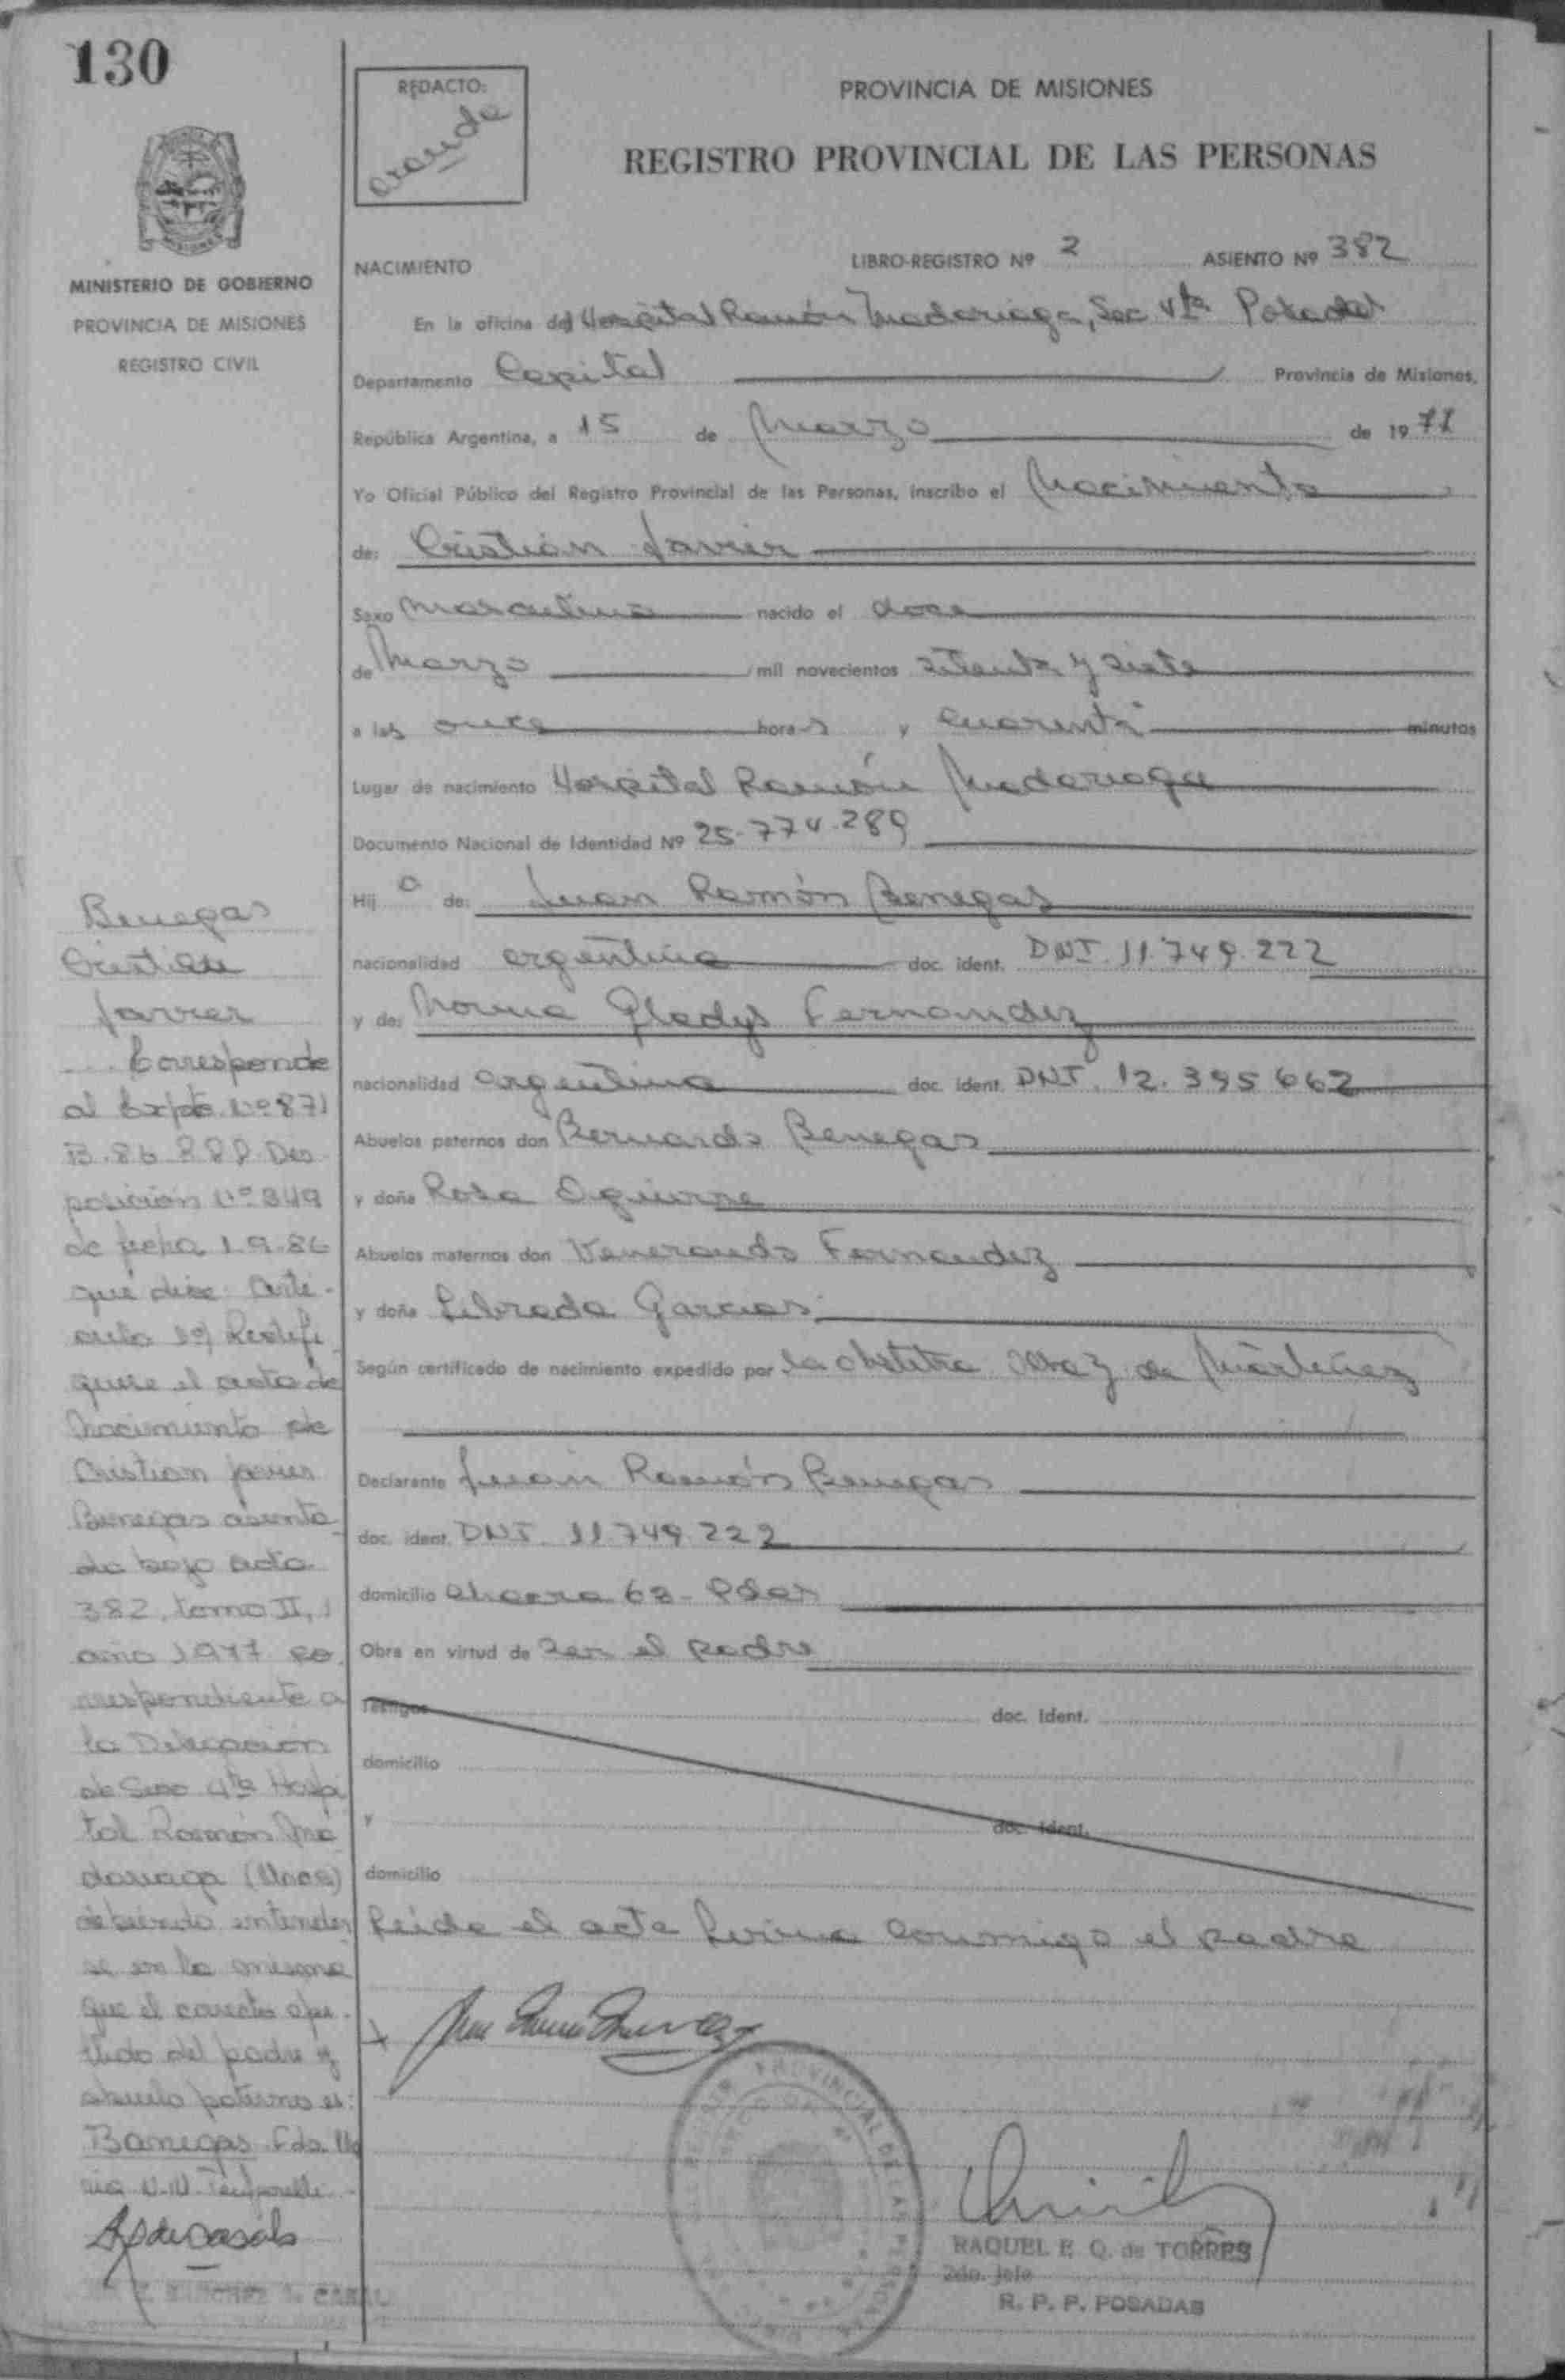 130
REDACTO:
PROVINCIA DE MISIONES
REGISTRO PROVINCIAL DE LAS PERSONAS
MINISTERIO DE GOBIERNO
PROVINCIA DE MISIONES
REGISTRO CIVIL
NACIMIENTO LIBRO-REGISTRO Nº 2 ASIENTO Nº 382
En la oficina del Hospital Ramón Madariaga, Sec 4ta Posadas
Departamento Capital Provincia de Misiones,
República Argentina, a 15 de Marzo de 1977
Yo Oficial Público del Registro Provincial de las Personas, inscribo el Nacimiento
de: Cristian Javier
Sexo Masculino nacido el doce
de Marzo mil novecientos setenta y siete
a las once horas y cuarenta minutos
Lugar de nacimiento Hospital Ramón Madariaga
Documento Nacional de Identidad Nº 25.774.289
Hijo de: Juan Ramón Benegas
nacionalidad argentina doc. ident. DNI. 11.749.222
y de: Norma Gladys Fernandez
nacionalidad argentina doc. ident. DNI. 12.395 662
Abuelos paternos don Bernardo Benegas
y doña Rosa
Abuelos maternos don Venerando Fernandez
y doña Librada
Según certificado de nacimiento expedido por la obstetra de Martinez
Declarante Juan Ramón Benegas
doc. ident. DNI. 11.749.222
domicilio chacra 68 - Pdas
Obra en virtud de ser el padre
Testigos doc. Ident.
domicilio
y doc. ident.
domicilio
Leida el acta firma conmigo el padre
RAQUEL E. Q. de TORRES
2do. Jefe
R. P. P. POSADAS
Benegas
Cristian
Javier
Corresponde
al Expte. Nº 871
B.86 Dis
posición Nº 349
de fecha 1.9.86
que dice: Artí-
culo 1º) Rectifi
quese el acta de
Nacimiento de
Cristian Javier
Benegas asenta
da bajo acta
382, tomo II,
año 1977 co
rrespondiente a
la Delegación
de Secc 4ta Hospi
tal Ramón Ma
dariaga (Mnes)
debiendo entender
se en la misma
que el correcto ape-
llido del padre y
abuelo paterno es:
Banegas Fdo. Ma
ria